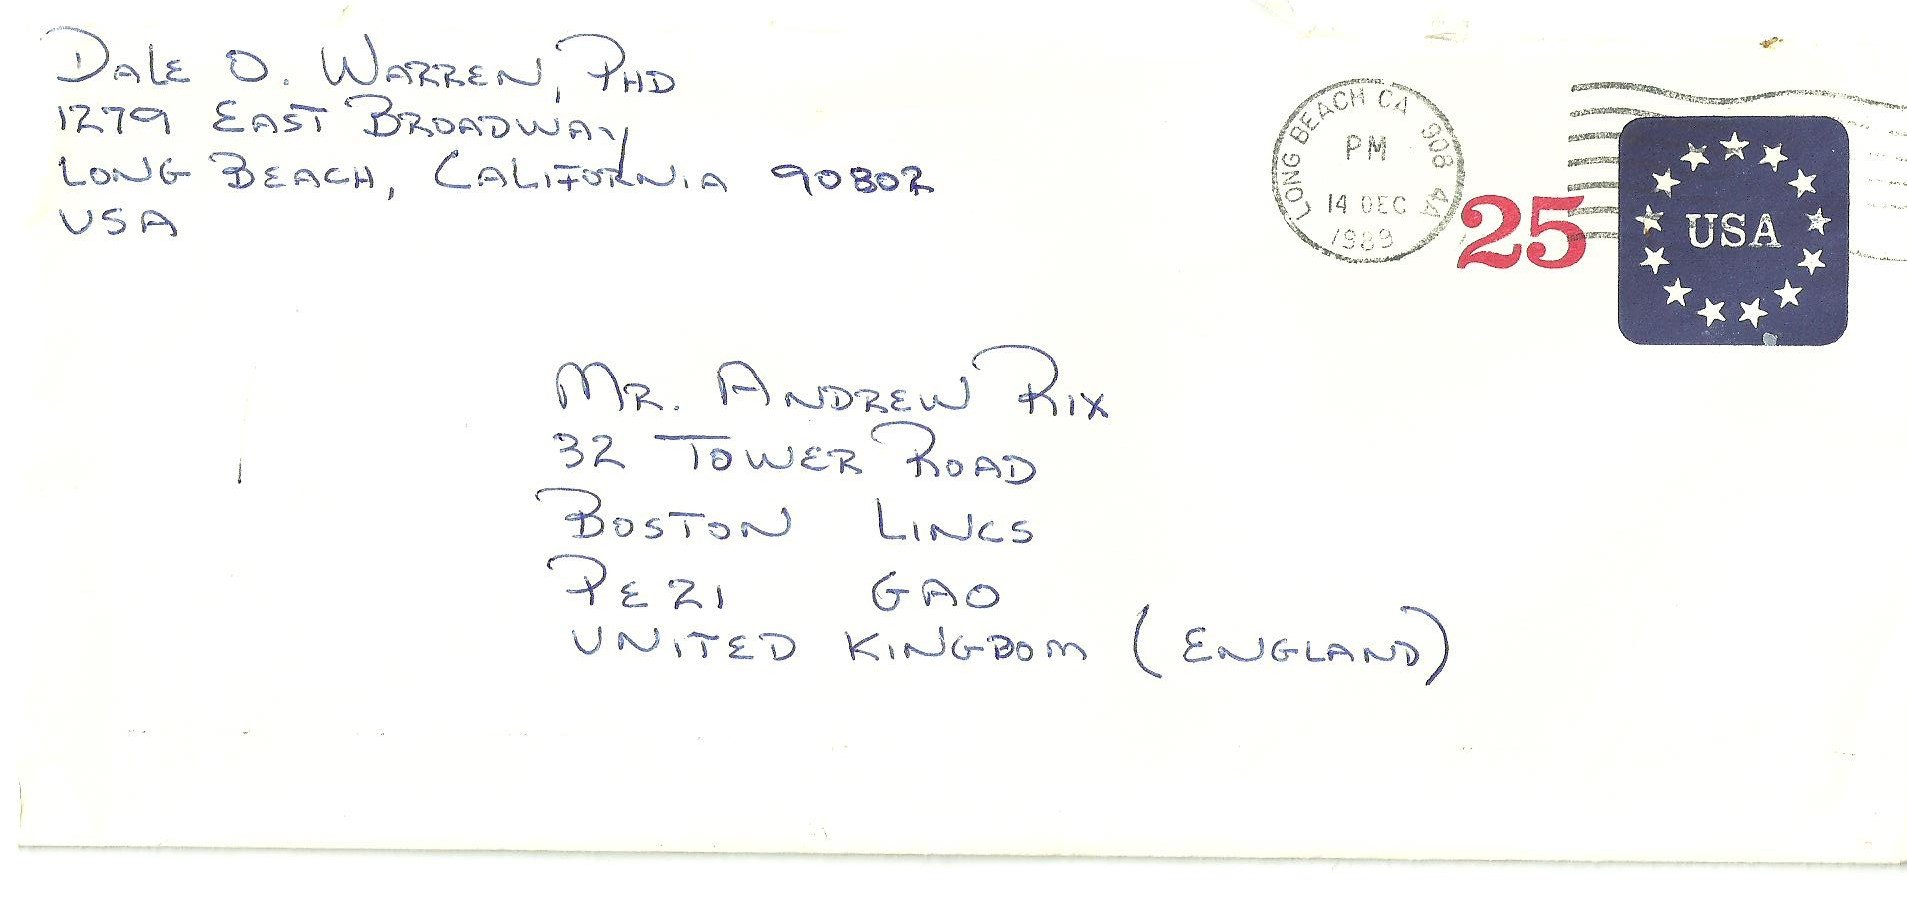 Dale O. Warren, PhD
1279 East Broadway
Long Beach, California 90802
USA
LONG BEACH CA 908 4A
PM
14 DEC
1989
25
USA
Mr. Andrew Rix
32 Tower Road
Boston Lincs
PE21 GAO
United Kingdom (England)